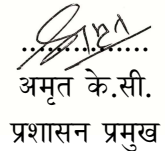 ...................
अमृत के.सी.
प्रशासन प्रमुख